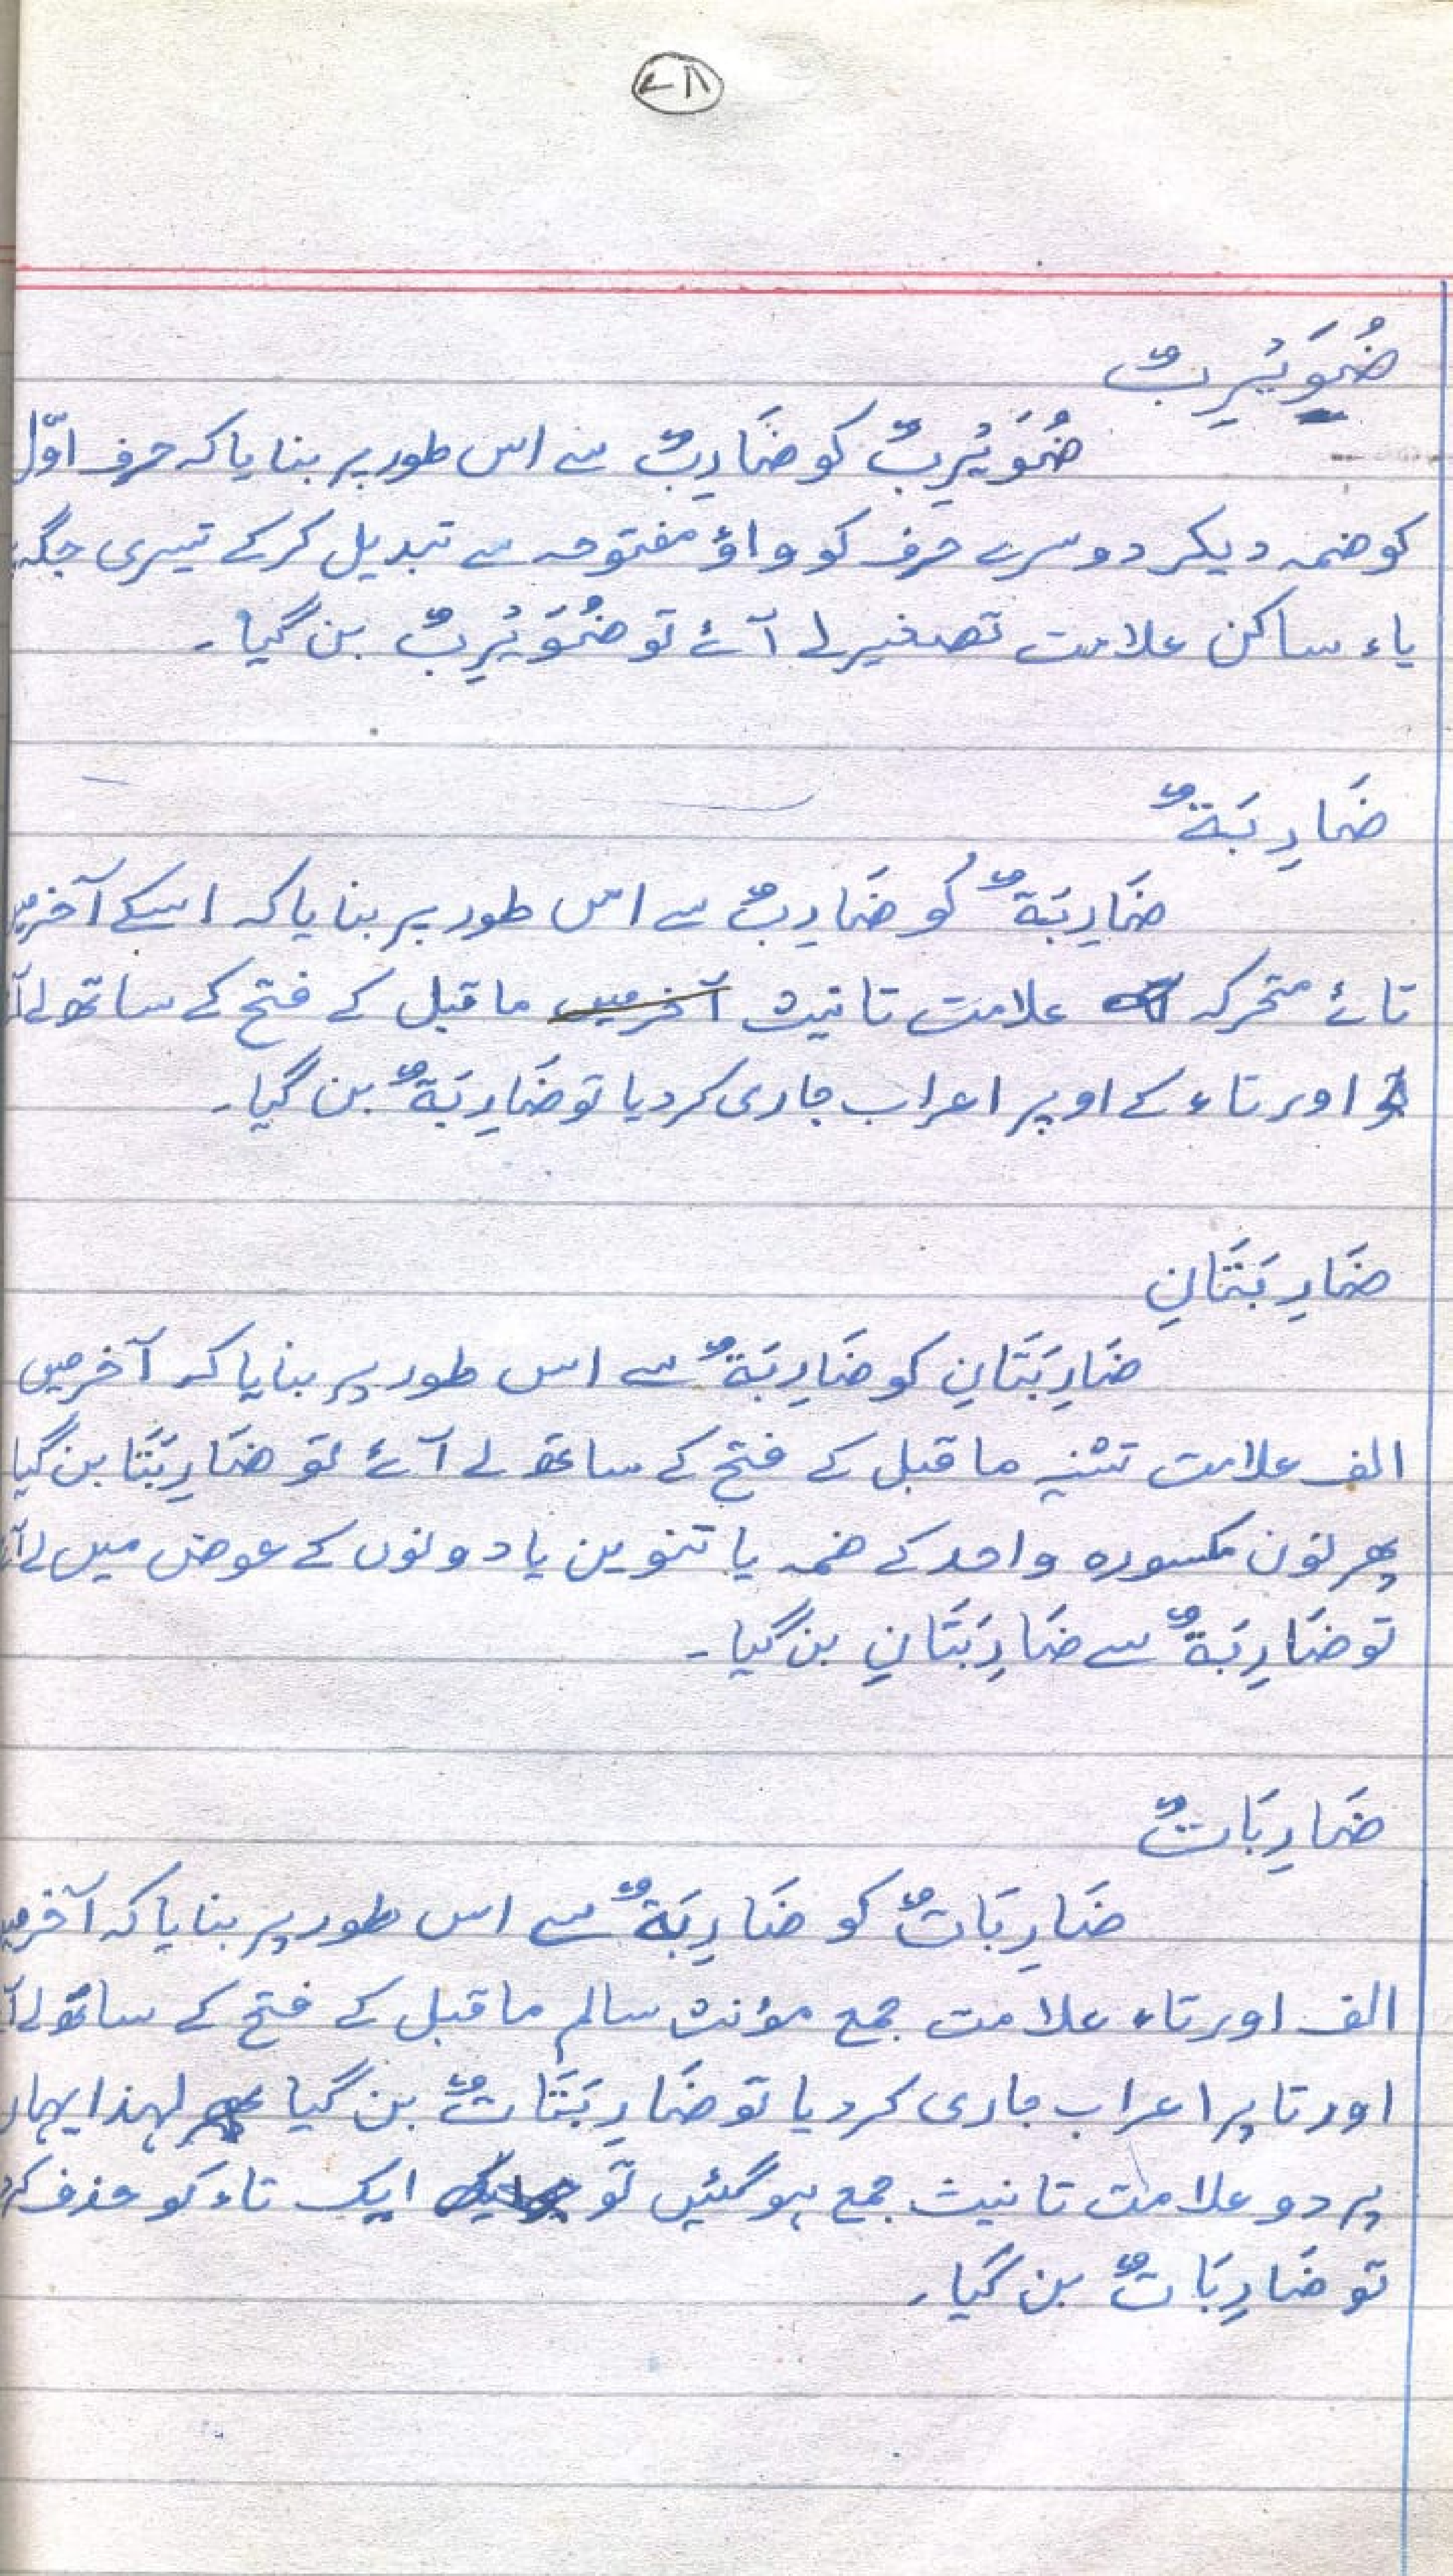 ۷۸
ضُوَیْرِبٌ
ضُوَیْرِبٌ کو ضَارِبٌ سے اس طور پر بنایا کہ حرف اوّل
کو ضمہ دیکر دوسرے حرف کو واؤ مفتوحہ سے تبدیل کرکے تیسری جگہ
یاء ساکن علامت تصغیر لے آئے تو ضُوَیْرِبٌ بن گیا۔
ضَارِبَةٌ
ضَارِبَةٌ کو ضَارِبٌ سے اس طور پر بنایا کہ اسکے آخر میں
تائے متحرکہ علامت تانیث آخر میں ما قبل کے فتح کے ساتھ لے
اور تاء کے اوپر اعراب جاری کردیا تو ضَارِبَةٌ بن گیا۔
ضَارِبَتَانِ
ضَارِبَتَانِ کو ضَارِبَةٌ سے اس طور پر بنایا کہ آخر میں
الف علامت تثنیہ ما قبل کے فتح کے ساتھ لے آئے تو ضَارِبَتَا بن گیا
پھر نون مکسورہ واحد کے ضمہ یا تنوین یا دونوں کے عوض میں لے
تو ضَارِبَةٌ سے ضَارِبَتَانِ بن گیا۔
ضَارِبَاتٌ
ضَارِبَاتٌ کو ضَارِبَةٌ سے اس طور پر بنایا کہ آخر میں
الف اور تاء علامت جمع مؤنث سالم ما قبل کے فتح کے ساتھ لے
اور تا پر اعراب جاری کردیا تو ضَارِبَتَاتٌ بن گیا لہذا یہاں
پر دو علامت تانیث جمع ہوگئیں تو ایک تاء کو حذف
تو ضَارِبَاتٌ بن گیا۔